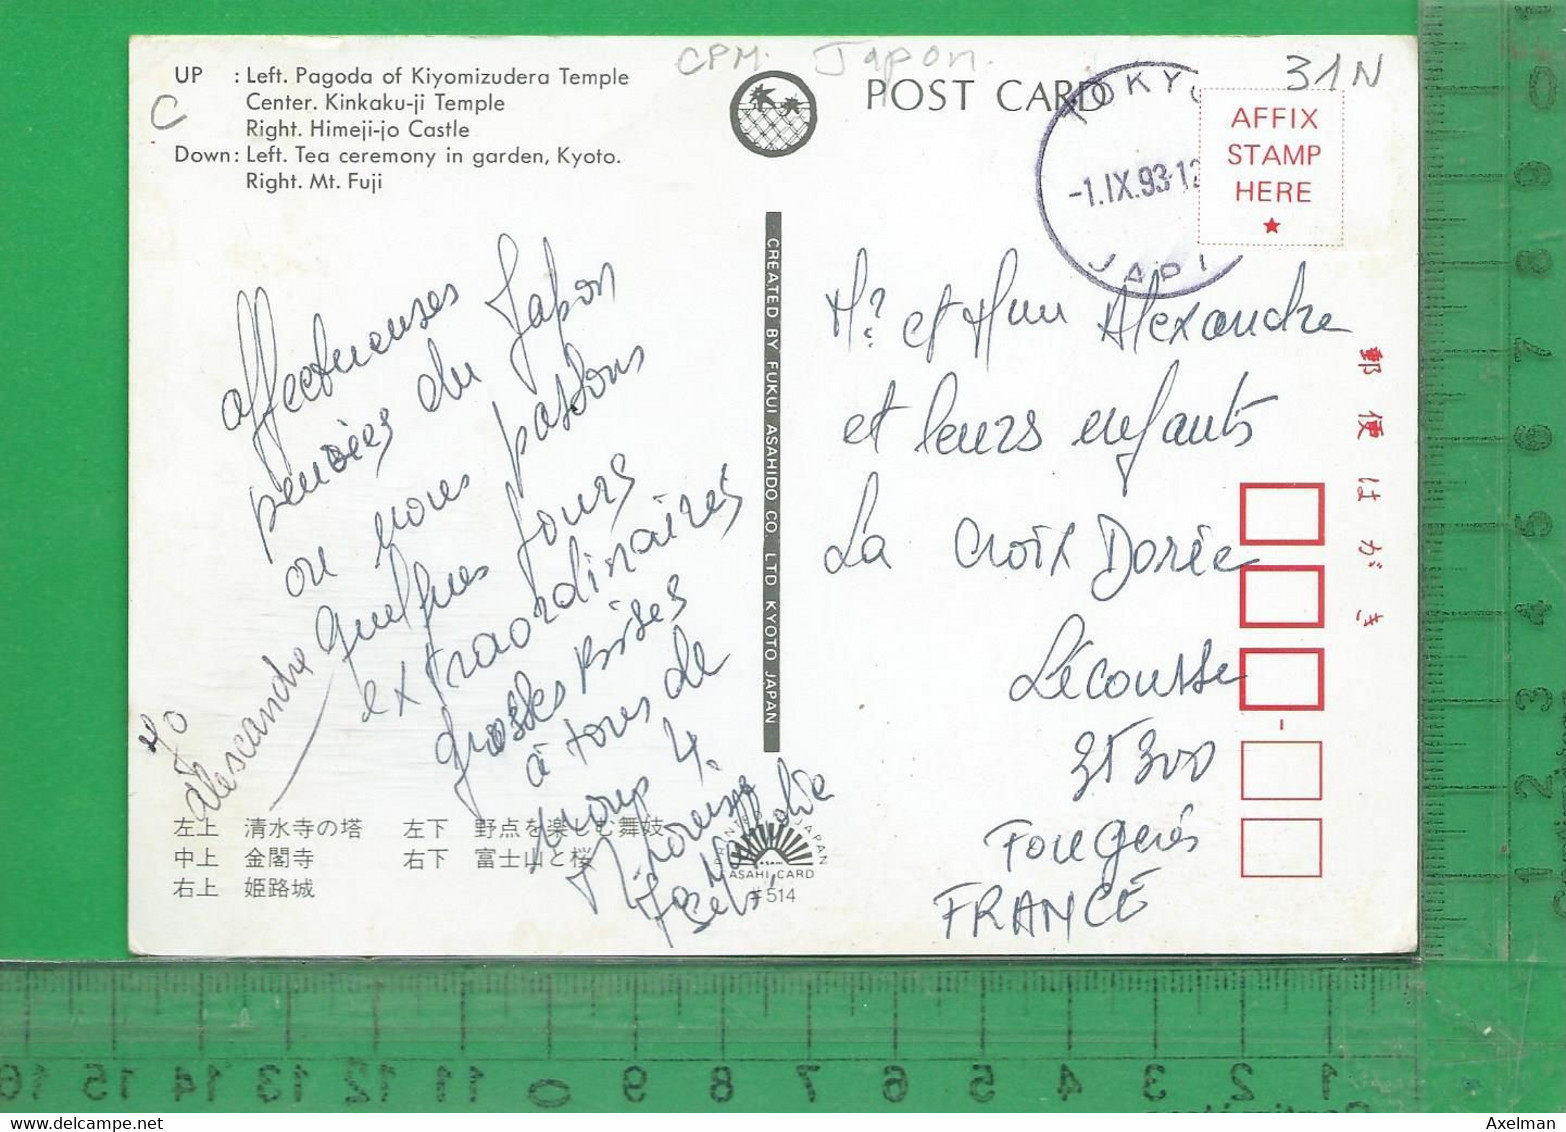 CPM. Japon.
31N
C
UP : Left. Pagoda of Kiyomizudera Temple
Center. Kinkaku-ji Temple
Right. Himeji-jo Castle
Down: Left. Tea ceremony in garden, Kyoto.
Right. Mt. Fuji
POST CARD
TOKYO
-1.IX.93.12
JAPA
AFFIX
STAMP
HERE
affectueuses
pensées du Japon
ou nous passons
quelques jours
extraordinaires
grosses bises
à tous de
nous 4.
alescandre
CREATED BY FUKUI ASAHIDO CO. LTD KYOTO JAPAN
Mr et Mme Alexandre
et leurs enfants
La Croix Dorée
Lécousse
35300
Fougères
FRANCE
郵便はがき
左上 清水寺の塔 左下 野点を楽しむ舞妓
中上 金閣寺 右下 富士山と桜
右上 姫路城
JAPAN
ASAHI
ASAHI CARD
#514
1 2 3 4 5 6 7 8 9 0
16 15 14 13 12 11 0 9 8 7 6 5 4 3 2 1
Axelman